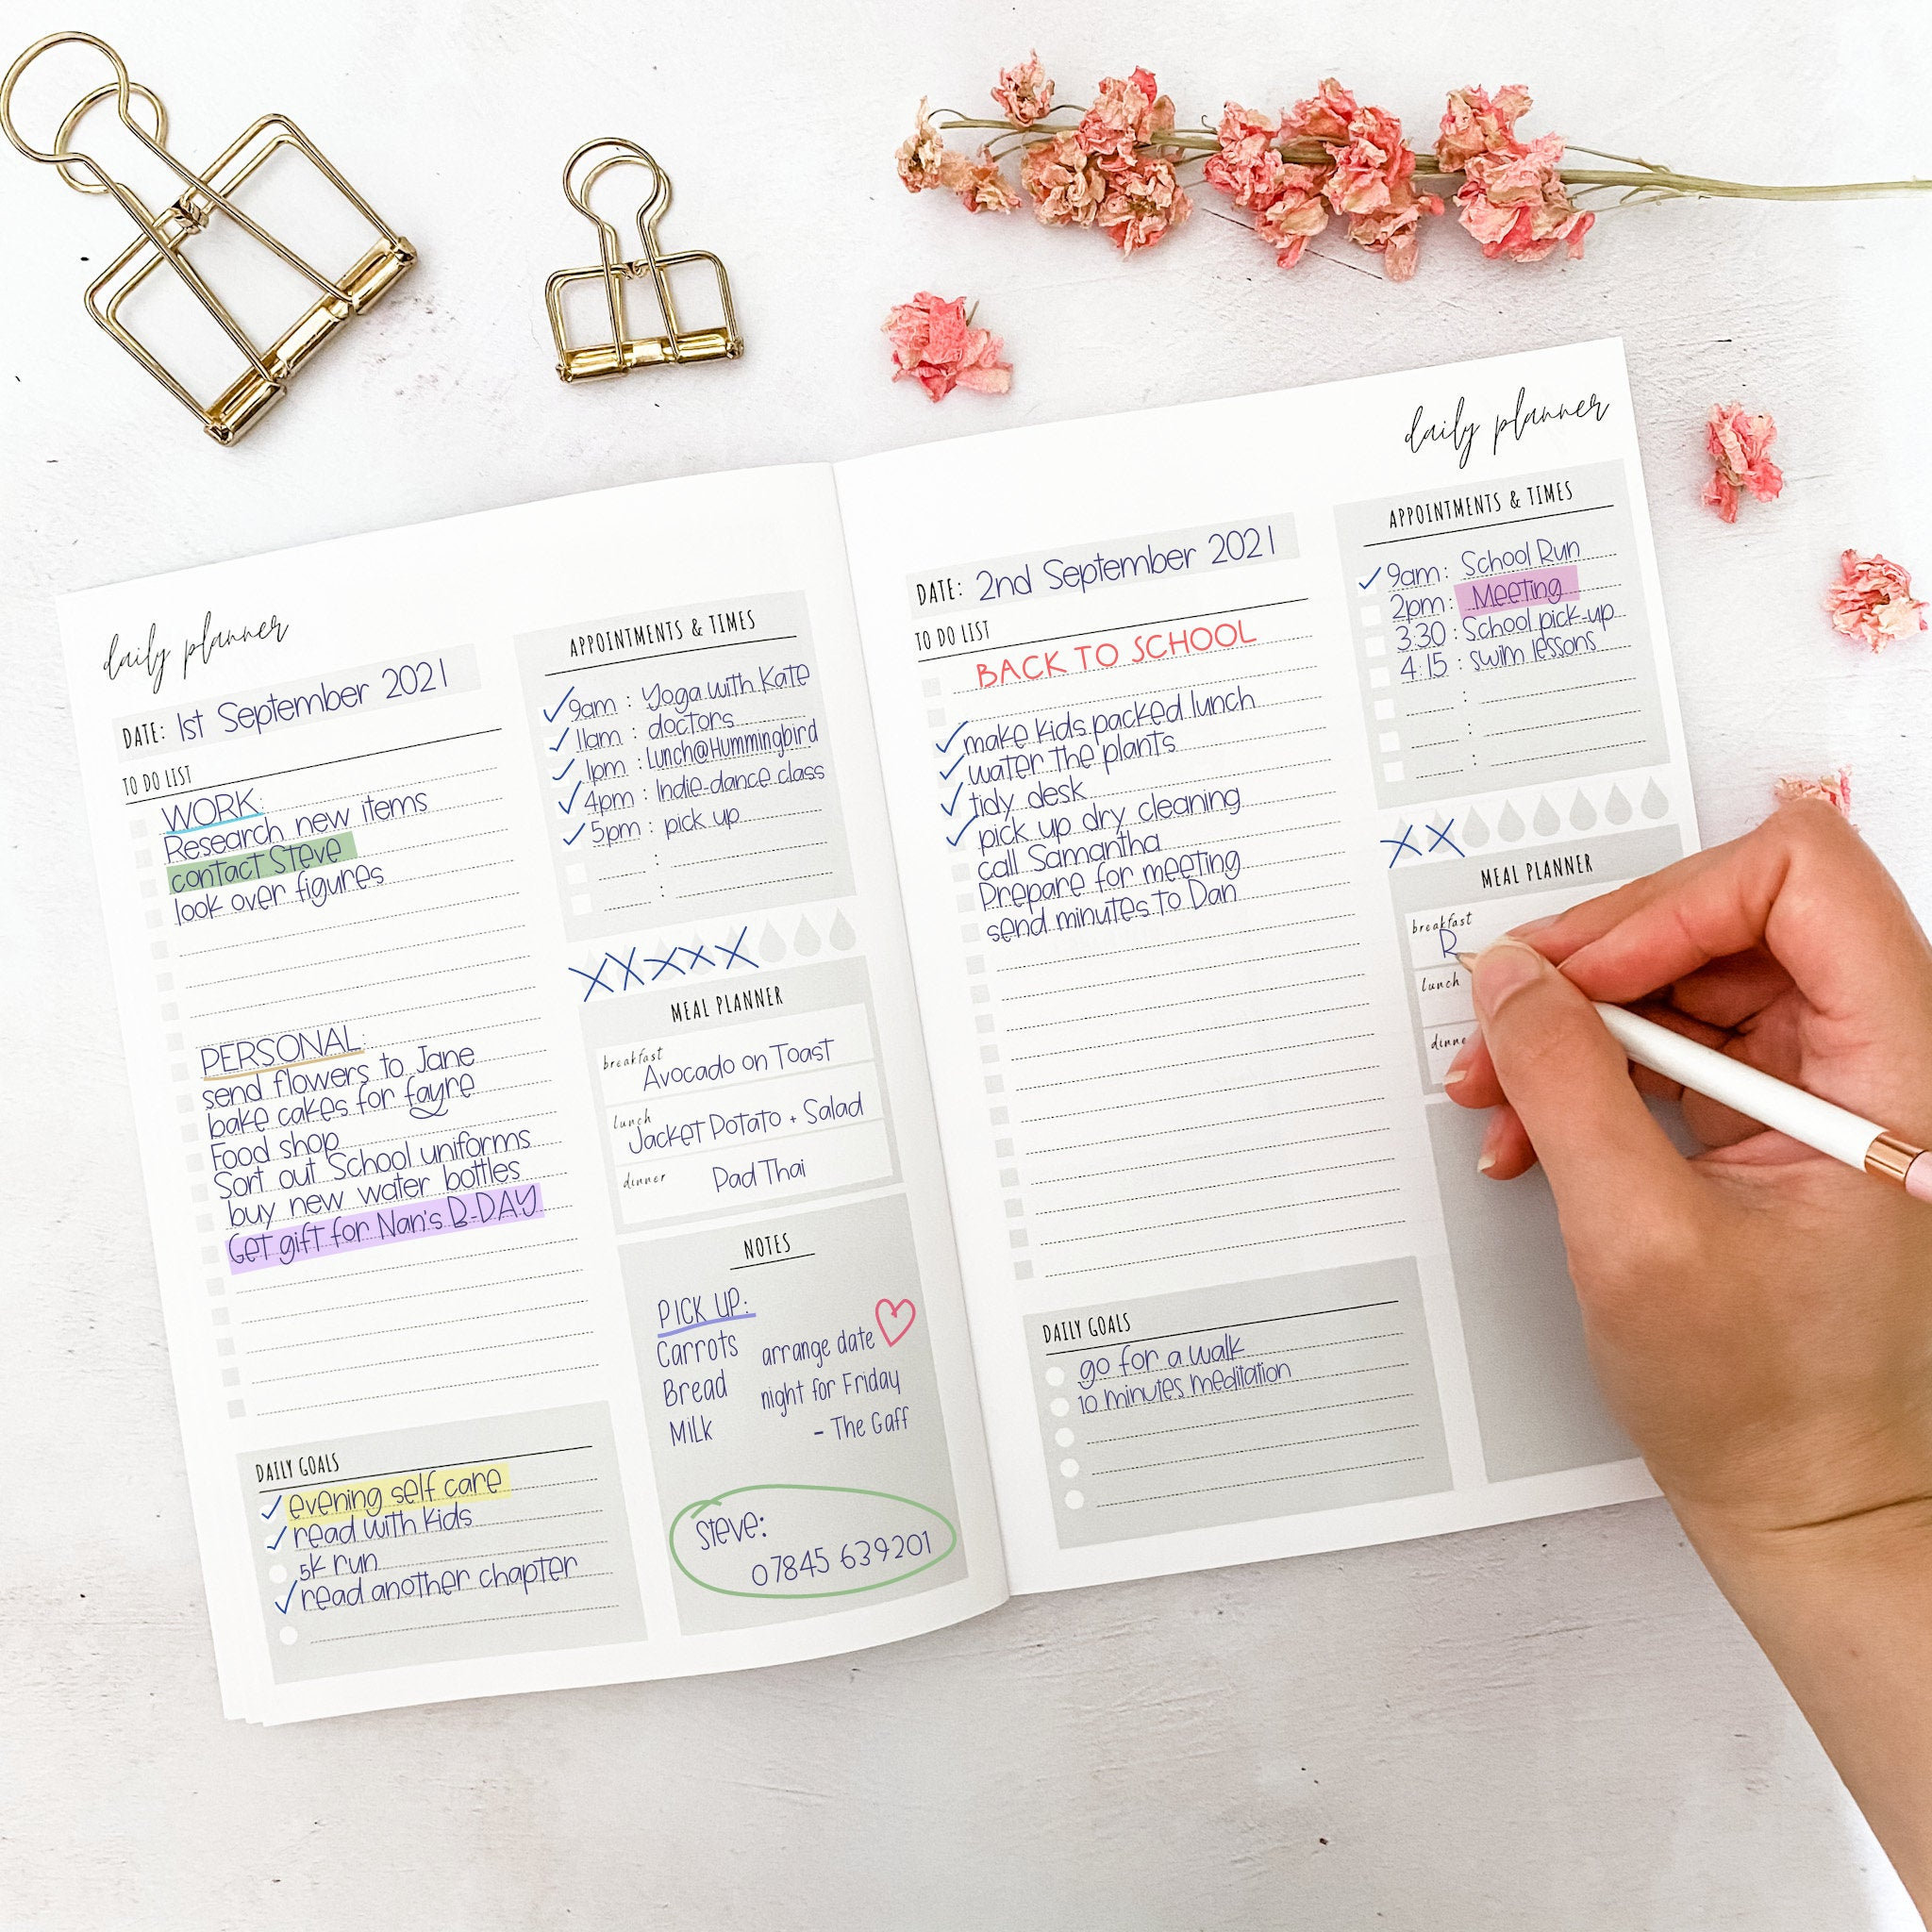 daily planner
DATE: 1st September 2021
TO DO LIST
WORK:
Research new items
contact Steve
look over figures
PERSONAL:
send flowers to Jane
bake cakes for fayre
Food shop
Sort out School uniforms
buy new water bottles
Get gift for Nan's B-DAY
DAILY GOALS
evening self care
read with kids
5K run
read another chapter
APPOINTMENTS & TIMES
9am : Yoga with Kate
11am : doctors
1pm : Lunch@Hummingbird
4pm : Indie-dance class
5pm : pick up
MEAL PLANNER
breakfast
Avocado on Toast
lunch
Jacket Potato + Salad
dinner
Pad Thai
NOTES
PICK UP:
Carrots
Bread
Milk
arrange date
night for Friday
- The Gaff
Steve:
07845 639201
daily planner
DATE: 2nd September 2021
TO DO LIST
BACK TO SCHOOL
make kids packed lunch
water the plants
tidy desk
pick up dry cleaning
call Samantha
Prepare for meeting
send minutes to Dan
DAILY GOALS
go for a walk
10 minutes meditation
APPOINTMENTS & TIMES
9am : School Run
2pm : Meeting
3:30 : School pick-up
4:15 : swim lessons
MEAL PLANNER
breakfast
R
lunch
dinne